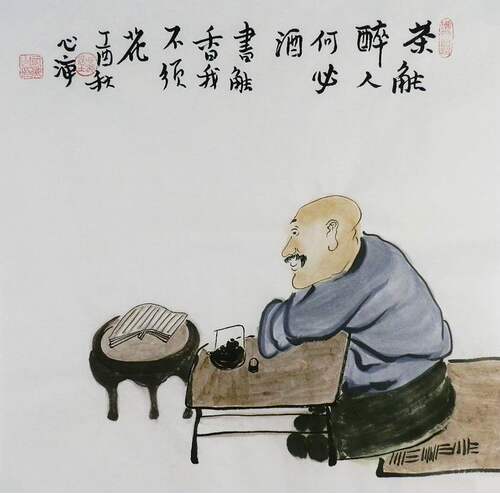 茶能
醉人
何必
酒
書能
香我
不須
花
丁酉秋
心